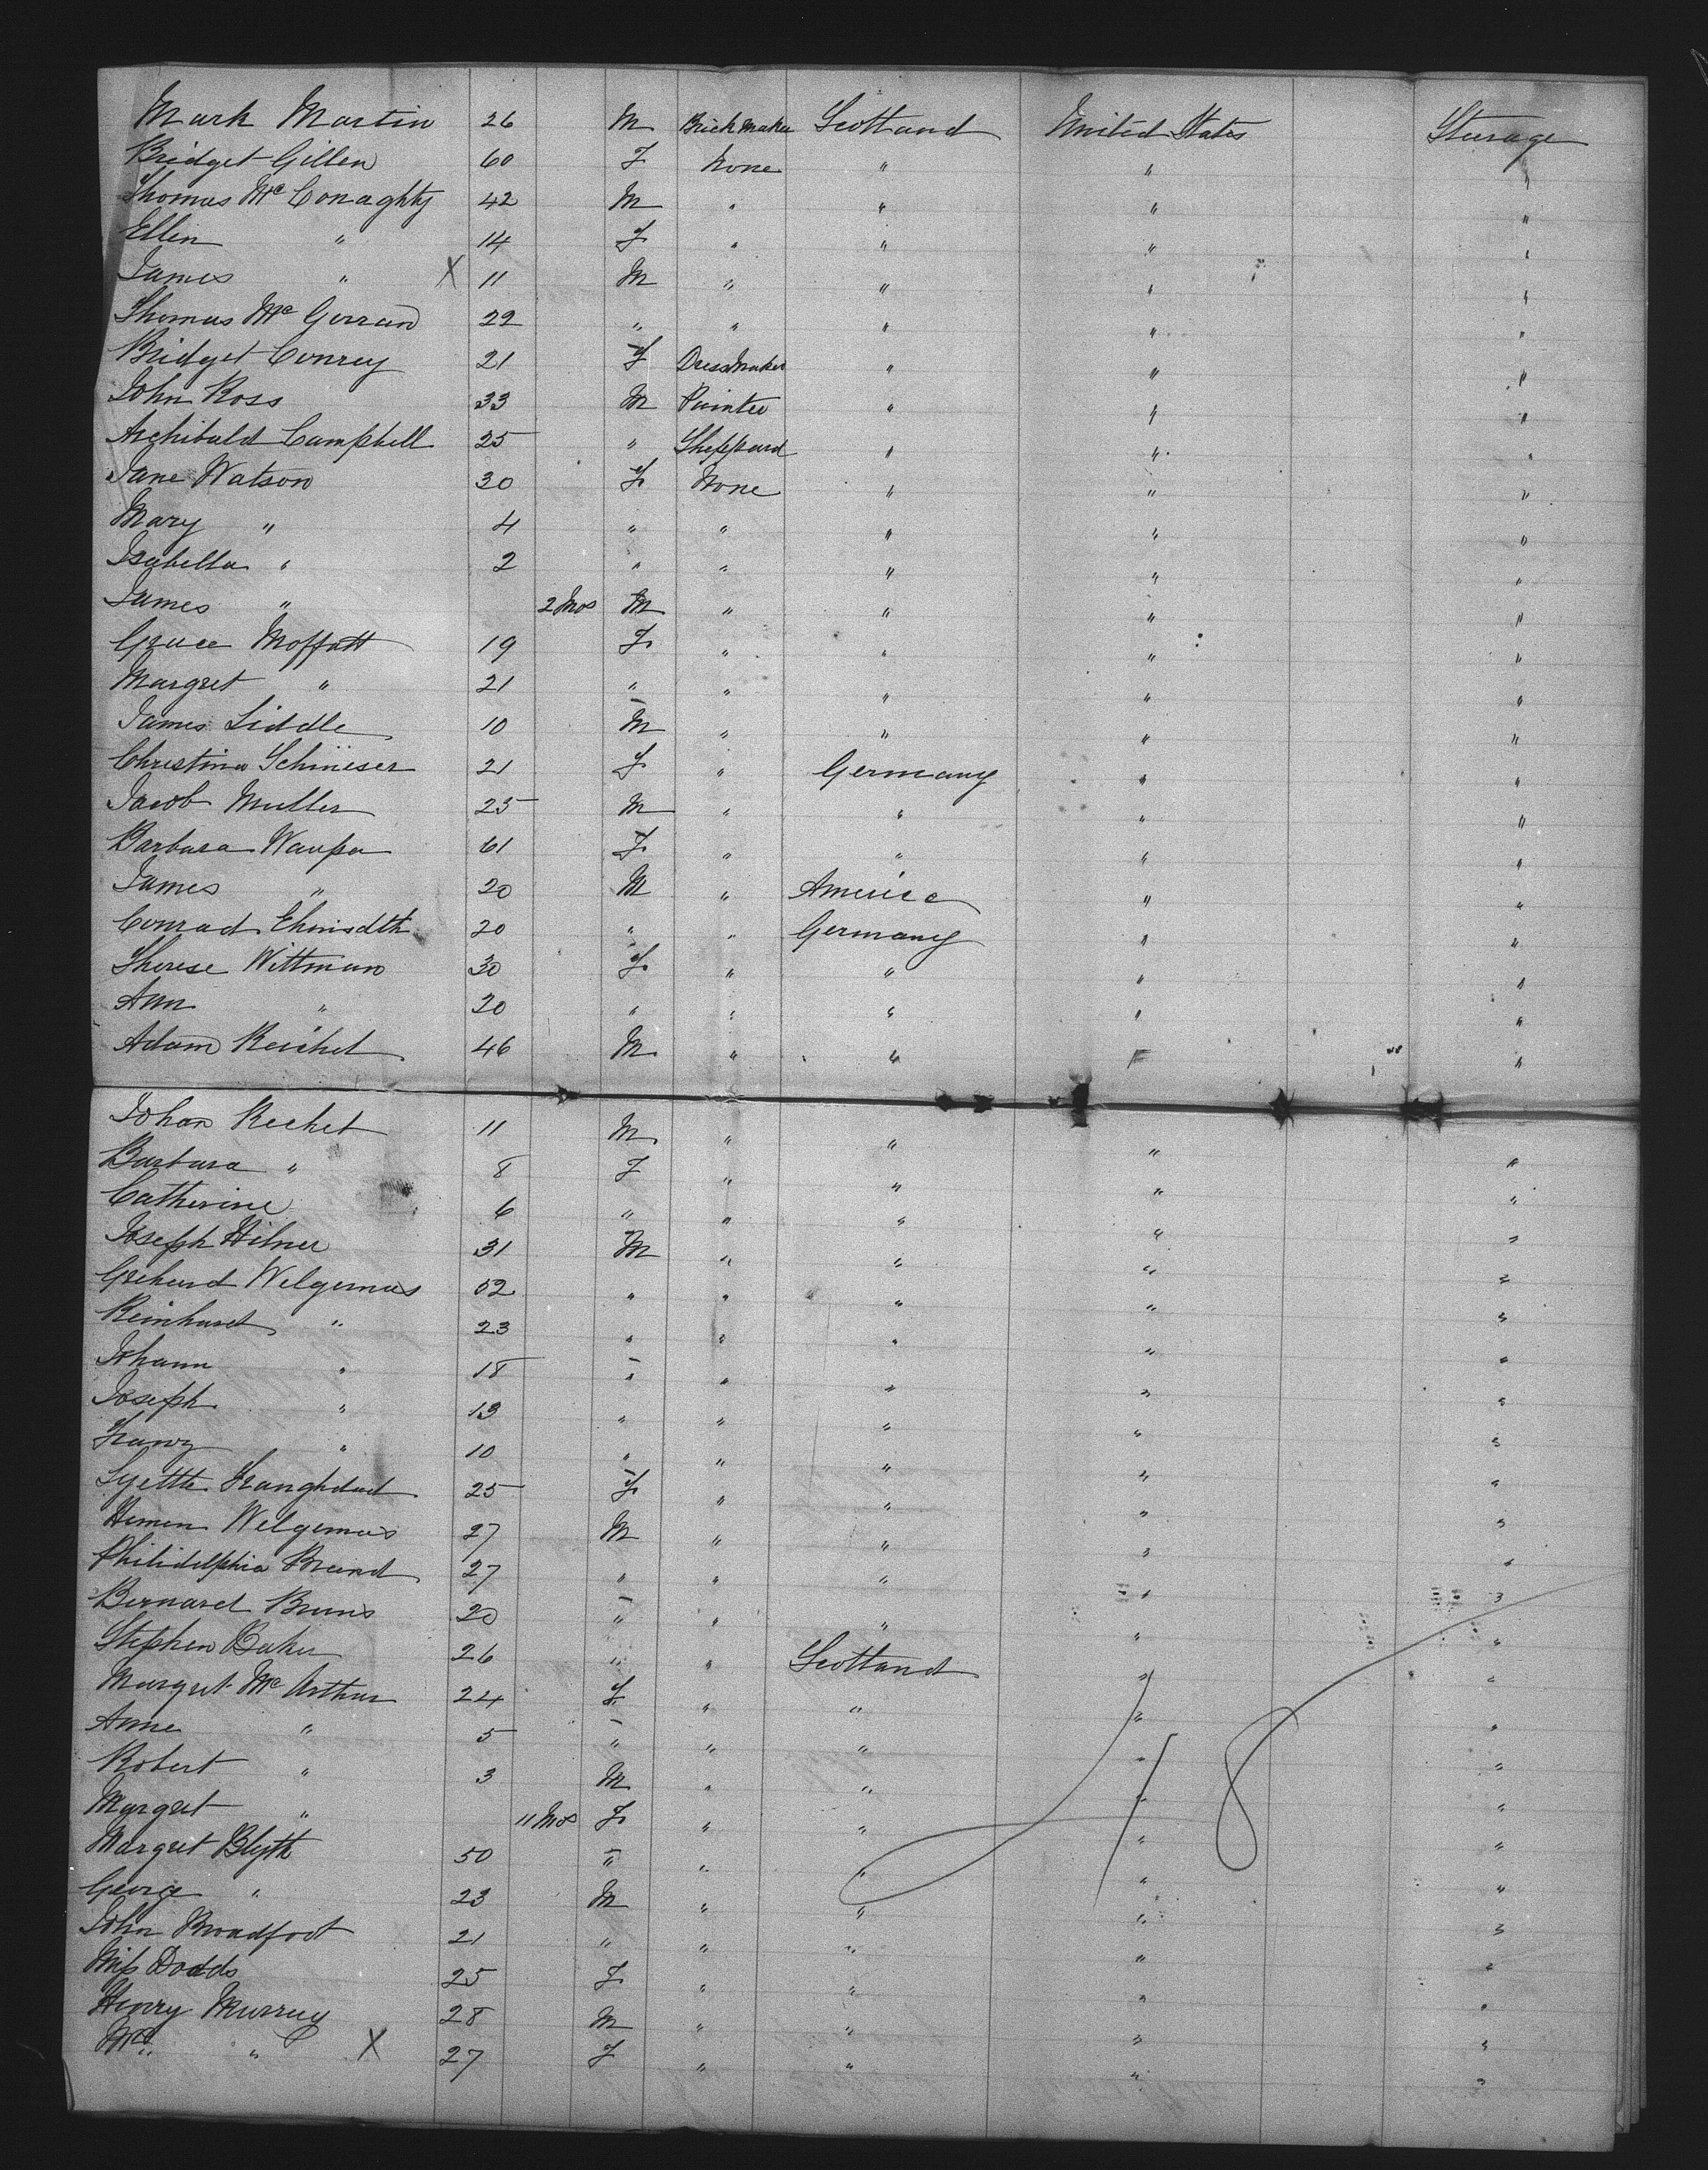 Mark Martin 26 M Brick Maker Scotland United States Steerage
Bridget Gillen 60 F None " " "
Thomas McConaghty 42 M " " " "
Ellen " 14 F " " " "
James " X 11 M " " " "
Thomas Mc Gurran 22 " " " " "
Bridget Conrey 21 F Dressmaker " " "
John Ross 33 M Painter " " "
Archibald Campbell 25 " Sheppard " " "
Jane Watson 30 F None " " "
Mary " 4 " " " " "
Isabella " 2 " " " " "
James " 2 Mos M " " " "
Grace Moffatt 19 F " " " "
Margret " 21 " " " " "
James Liddle 10 M " " " "
Christina 21 F " Germany " "
Jacob Muller 25 M " " " "
Barbara Waupa 61 F " " " "
James " 20 M " America " "
Conrad 20 " " Germany " "
Therese Wittman 30 F " " " "
Ann " 20 " " " " "
Adam Reichel 46 M " " " "
Johan Rechel 11 M " " " "
Barbara " 8 F " " " "
Catherine 6 " " " " "
Joseph Hilner 31 M " " " "
Gerhard Welgemas 52 " " " " "
Reinhard " 23 " " " " "
Johann " 18 " " " " "
Joseph " 13 " " " " "
Franz " 10 " " " " "
Lyette 25 F " " " "
Hemen Welgemas 27 M " " " "
Philidelphia Brand 27 " " " " "
Bernard Bruns 20 " " " " "
Stephen Baker 26 " " Scotland " "
Margret McArthur 24 F " " " "
Anne " 5 " " " " "
Robert " 3 M " " " "
Margret " 11 Mos F " " " "
Margret Blyth 50 " " " " "
George " 23 M " " " "
John Broadfoot 21 " " " " "
Miss Dodds 25 F " " " "
Henry Murray 28 M " " " "
Mrs " X 27 F " " " "